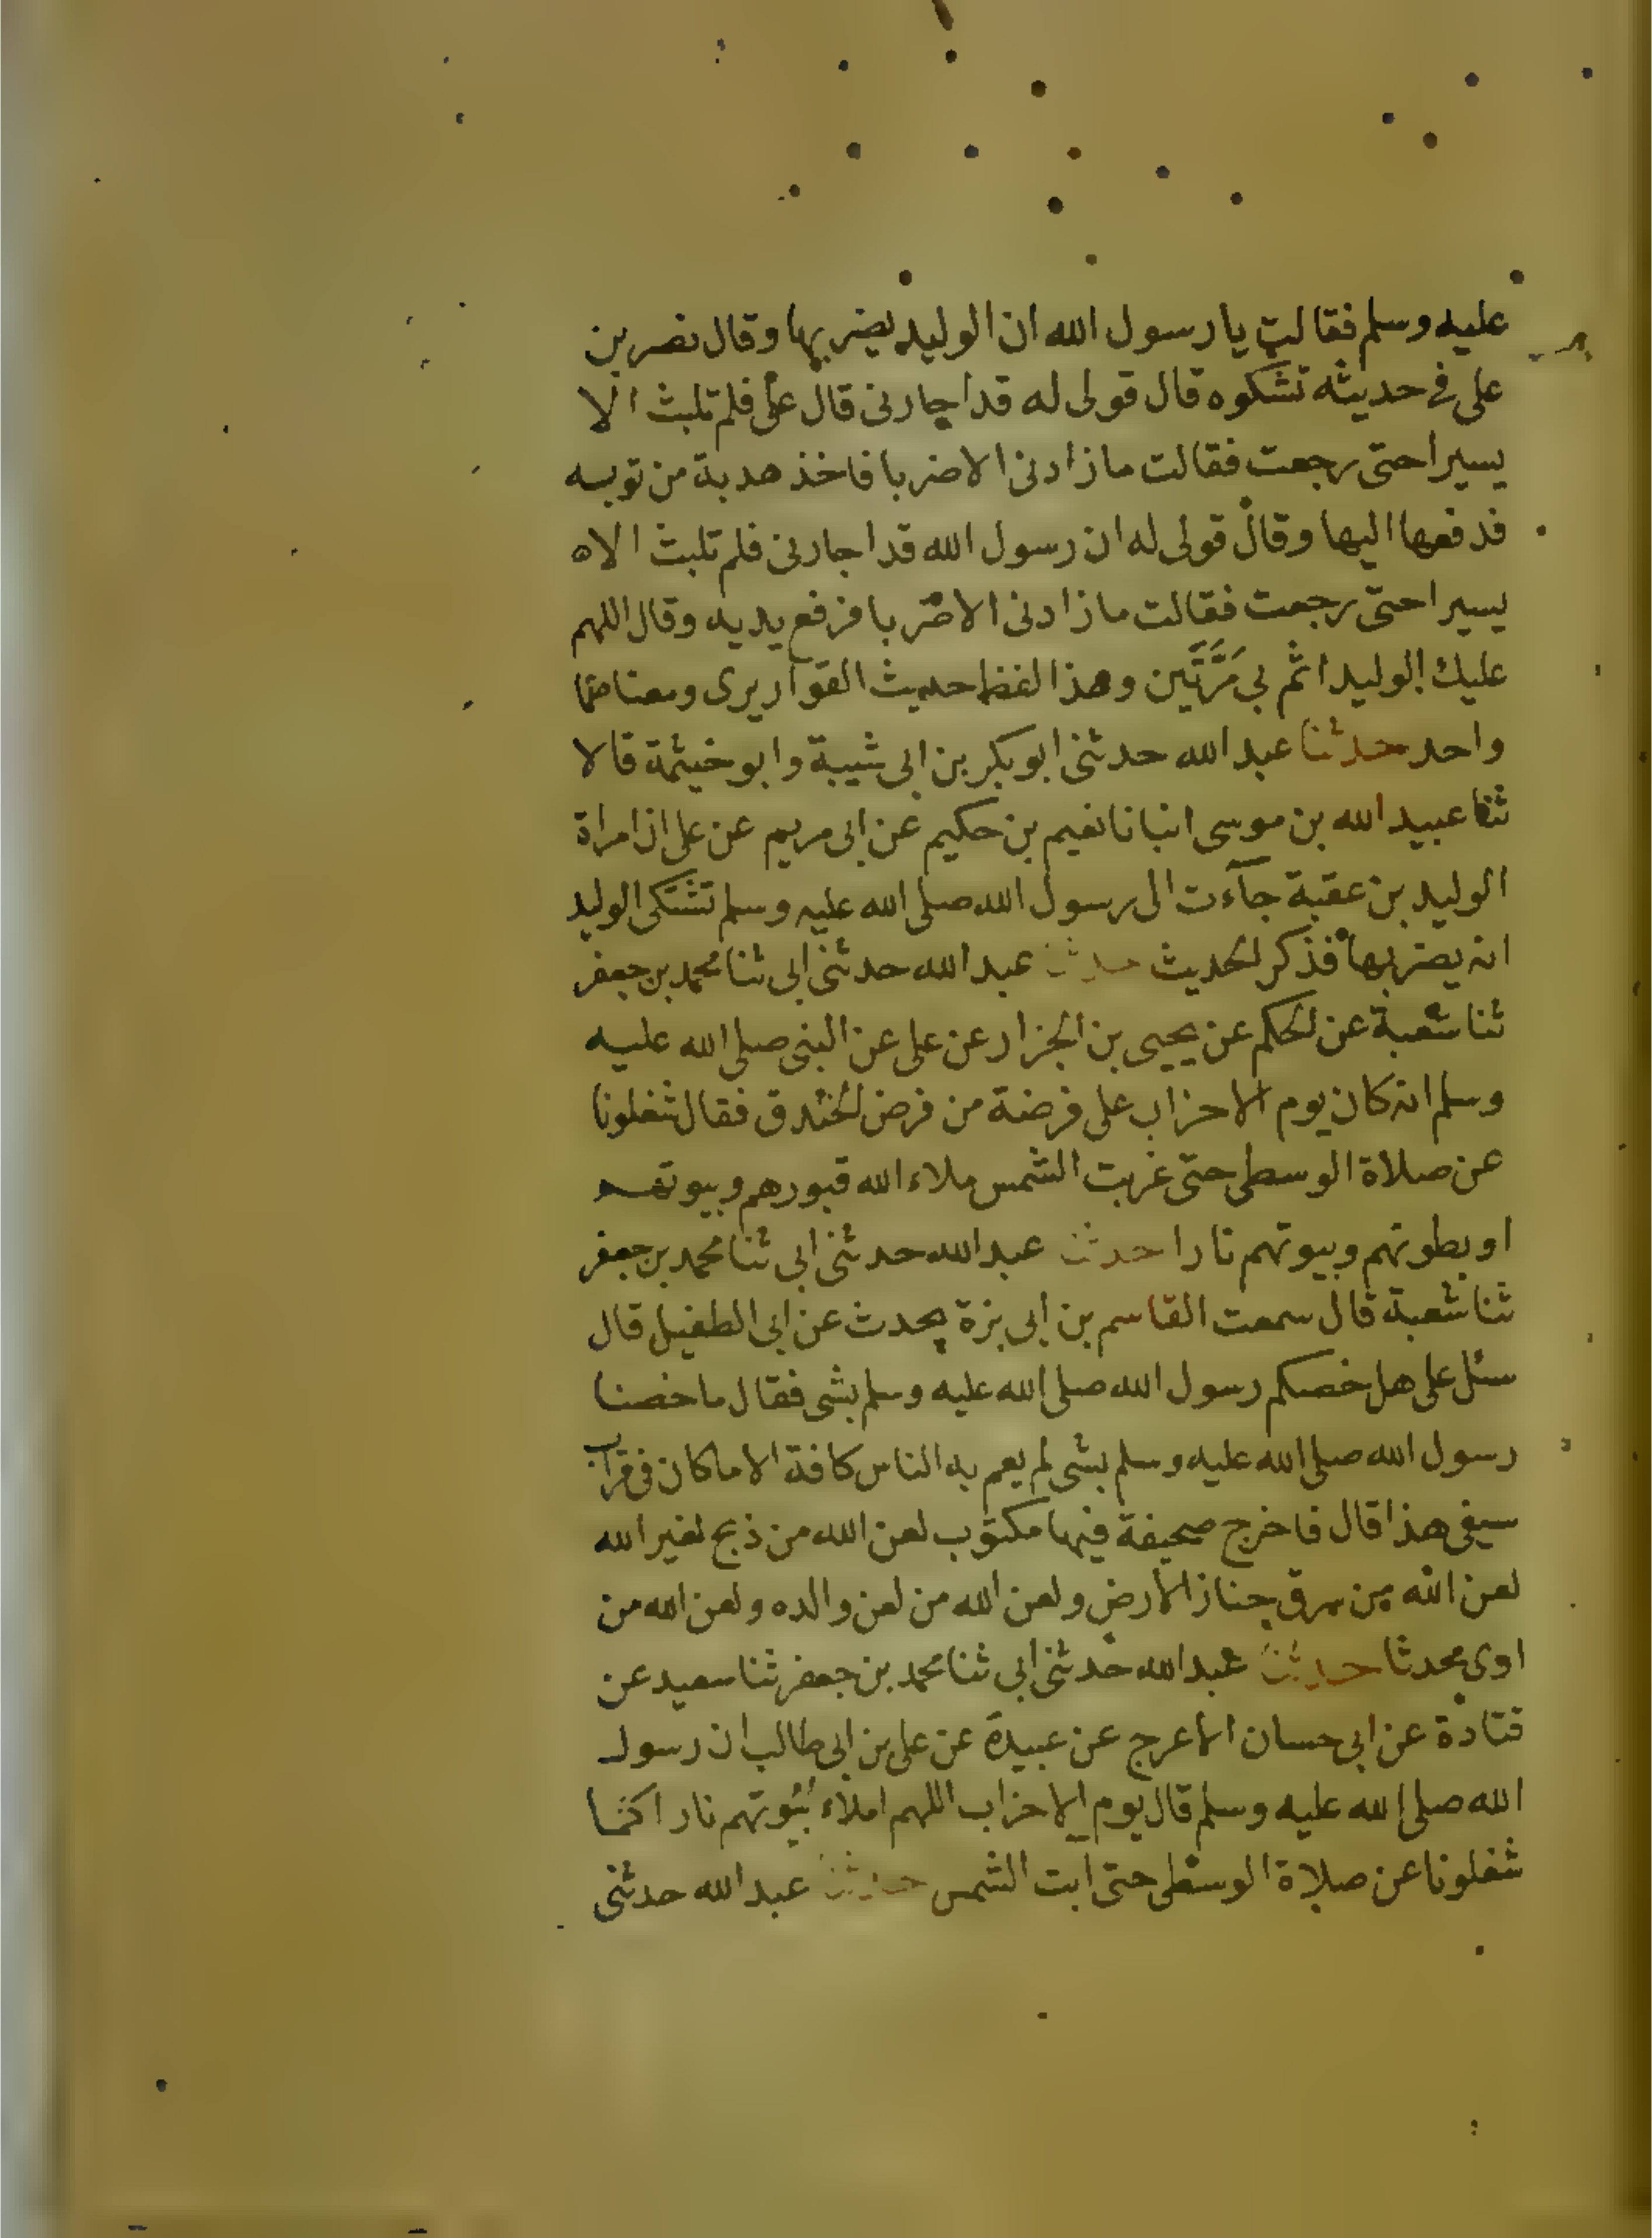 عليه وسلم فقالت يا رسول الله ان الوليد يضربها وقال نصر بن
على فى حديثه تشكوه قال قولى له قد اجارنى قال على فلم تلبث الا
يسيرا حتى رجعت فقالت ما زادنى الا ضربا فاخذ هدبة من ثوبه
فدفعها اليها وقال قولى له ان رسول الله قد اجارنى فلم تلبث الا
يسيرا حتى رجعت فقالت ما زادنى الا ضربا فرفع يديه وقال اللهم
عليك الوليد اثم بي مَرَّتَين وهذا لفظ حديث القواريرى ومعناهما
واحد حدثنا عبد الله حدثنى ابو بكر بن ابى شيبة وابو خيثمة قالا
ثنا عبيد الله بن موسى انبانا نعيم بن حكيم عن ابى مريم عن على ان امراة
الوليد بن عقبة جآءت الى رسول الله صلى الله عليه وسلم تشتكى الوليد
انه يضربها فذكر الحديث حدثنا عبد الله حدثنى ابى ثنا محمد بن جعفر
ثنا شعبة عن الحكم عن يحيى بن الجزار عن على عن النبى صلى الله عليه
وسلم انه كان يوم الاحزاب على فرضة من فرض الخندق فقال شغلونا
عن صلاة الوسطى حتى غربت الشمس ملاء الله قبورهم وبيوتهم
او بطونهم وبيوتهم نارا حدثنا عبد الله حدثنى ابى ثنا محمد بن جعفر
ثنا شعبة قال سمعت القاسم بن ابى بزة يحدث عن ابى الطفيل قال
سئل على هل خصكم رسول الله صلى الله عليه وسلم بشى فقال ما خصنا
رسول الله صلى الله عليه وسلم بشى لم يعم به الناس كافة الا ما كان فى قراب
سيفى هذا قال فاخرج صحيفة فيها مكتوب لعن الله من ذبح لغير الله
لعن الله من سرق الارض ولعن الله من لعن والده ولعن الله من
اوى محدثا حدثنا عبد الله حدثنى ابى ثنا محمد بن جعفر ثنا سعيد عن
قتادة عن ابى حسان الاعرج عن عبيدة عن على بن ابى طالب ان رسول
الله صلى الله عليه وسلم قال يوم الاحزاب اللهم املاء بُيُوتهم نارا كما
شغلونا عن صلاة الوسطى حتى ابت الشمس حدثنا عبد الله حدثنى